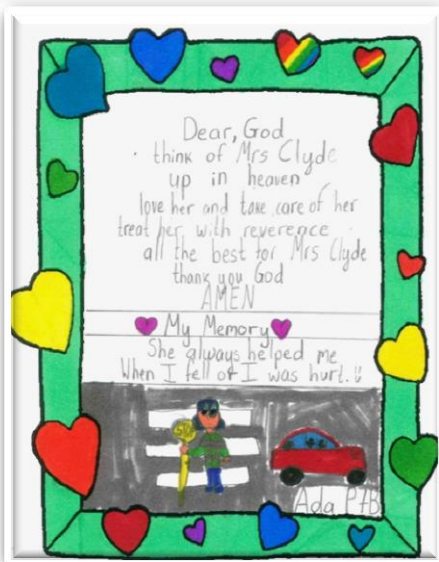 Dear, God
think of Mrs Clyde
up in heaven
love her and take care of her
treat her with reverence
all the best for Mrs Clyde
thank you God
AMEN
My Memory
She always helped me
When I fell or I was hurt.
Ada P7B